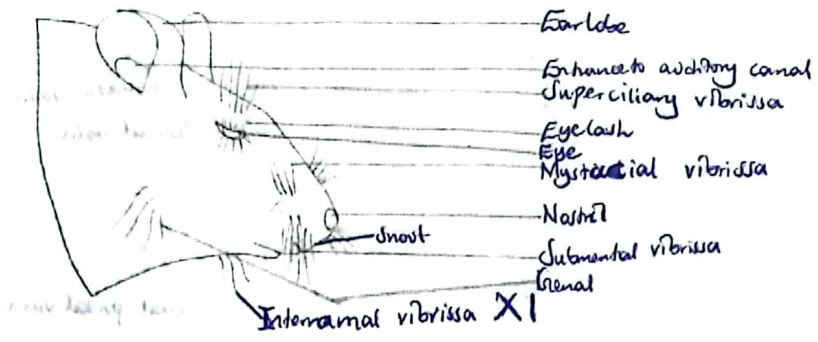 Earlobe
Enhance to auditory canal
Superciliary vibrissa
Eyelash
Eye
Mystacial vibrissa
Nostril
Snout
Submental vibrissa
Genal
Interramal vibrissa X1